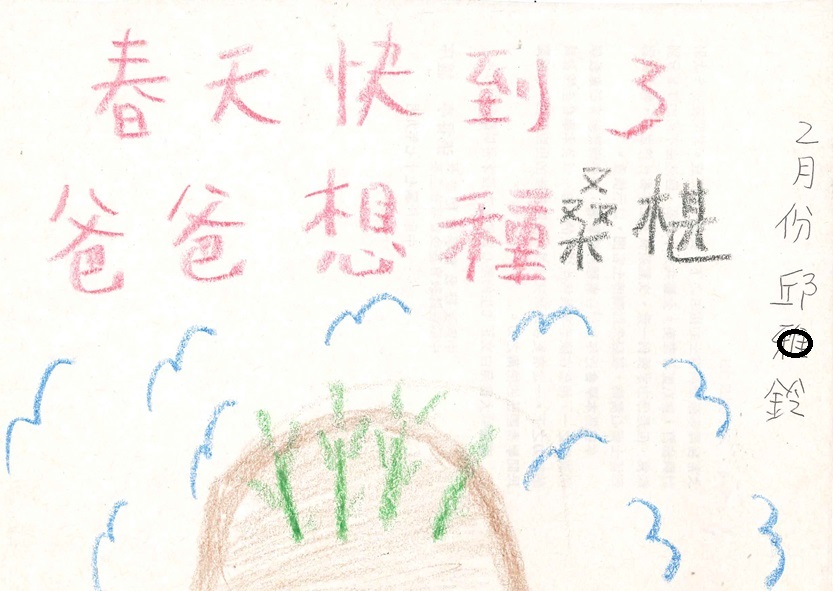 春天快到了
爸爸想種桑椹
2月份邱雅鈴